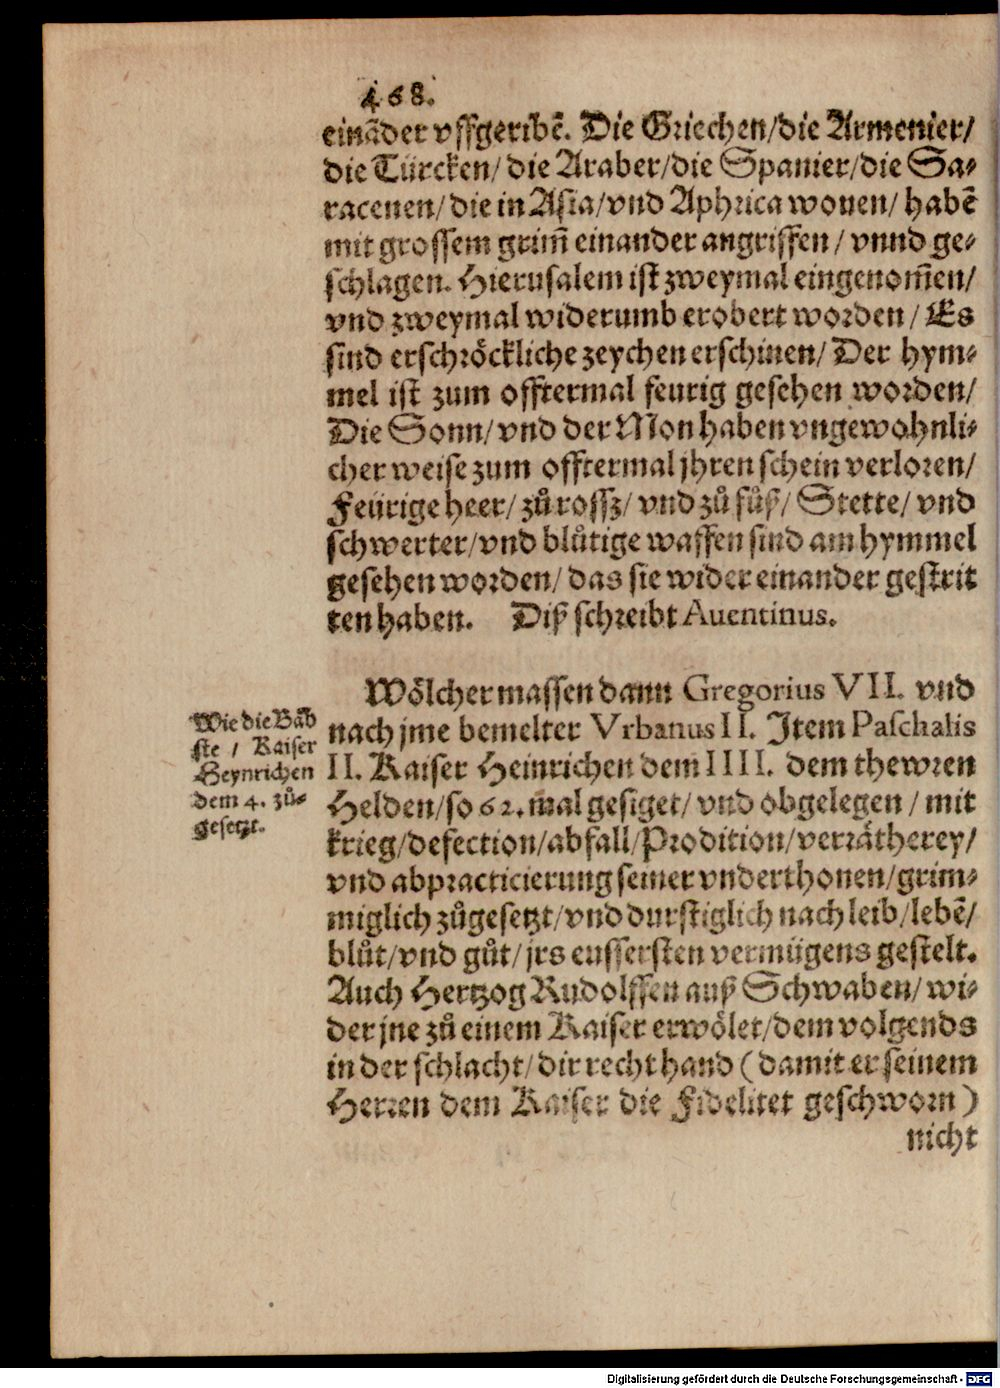 468.
einãder vffgeribẽ. Die Griechen/die Armenier/
die Türcken/ die Araber/die Spanier/die Sa-
racenen/ die in Asia/vnd Aphrica wonen/ habẽ
mit grossem grim̃ einander angriffen/ vnnd ge-
schlagen. Hierusalem ist zweymal eingenom̃en/
vnd zweymal widerumb erobert worden/ Es
sind erschröckliche zeychen erschinen/ Der hym-
mel ist zum offtermal feurig gesehen worden/
Die Sonn/ vnd der Mon haben vngewohnli-
cher weise zum offtermal jhren schein verloren/
Feürige heer/ zů rossz/ vnd zů fůß/ Stette/ vnd
schwerter/vnd blůtige waffen sind am hymmel
gesehen worden/ das sie wider einander gestrit
ten haben. Diß schreibt Auentinus.
Wölcher massen dann Gregorius VII. vnd
nach jme bemelter Vrbanus II. Item Paschalis
II. Kaiser Heinrichen dem IIII. dem thewren
Helden/so 62. mal gesiget/ vnd obgelegen/ mit
krieg/defection/abfall/Prodition/verrätherey/
vnd abpracticierung seiner vnderthonen/grim-
miglich zůgesetzt/vnd durstiglich nach leib/lebẽ/
blůt/vnd gůt/ jrs eussersten vermügens gestelt.
Auch Hertzog Rudolffen auß Schwaben/ wi-
der jne zů einem Kaiser erwölet/dem volgends
in der schlacht/ dir recht hand (damit er seinem
Herren dem Kaiser die Fidelitet geschworn)
nicht
Wie die Bäb
ste / Kaiser
Heynrichen
dem 4. zů-
gesetzt.
Digitalisierung gefördert durch die Deutsche Forschungsgemeinschaft - DFG